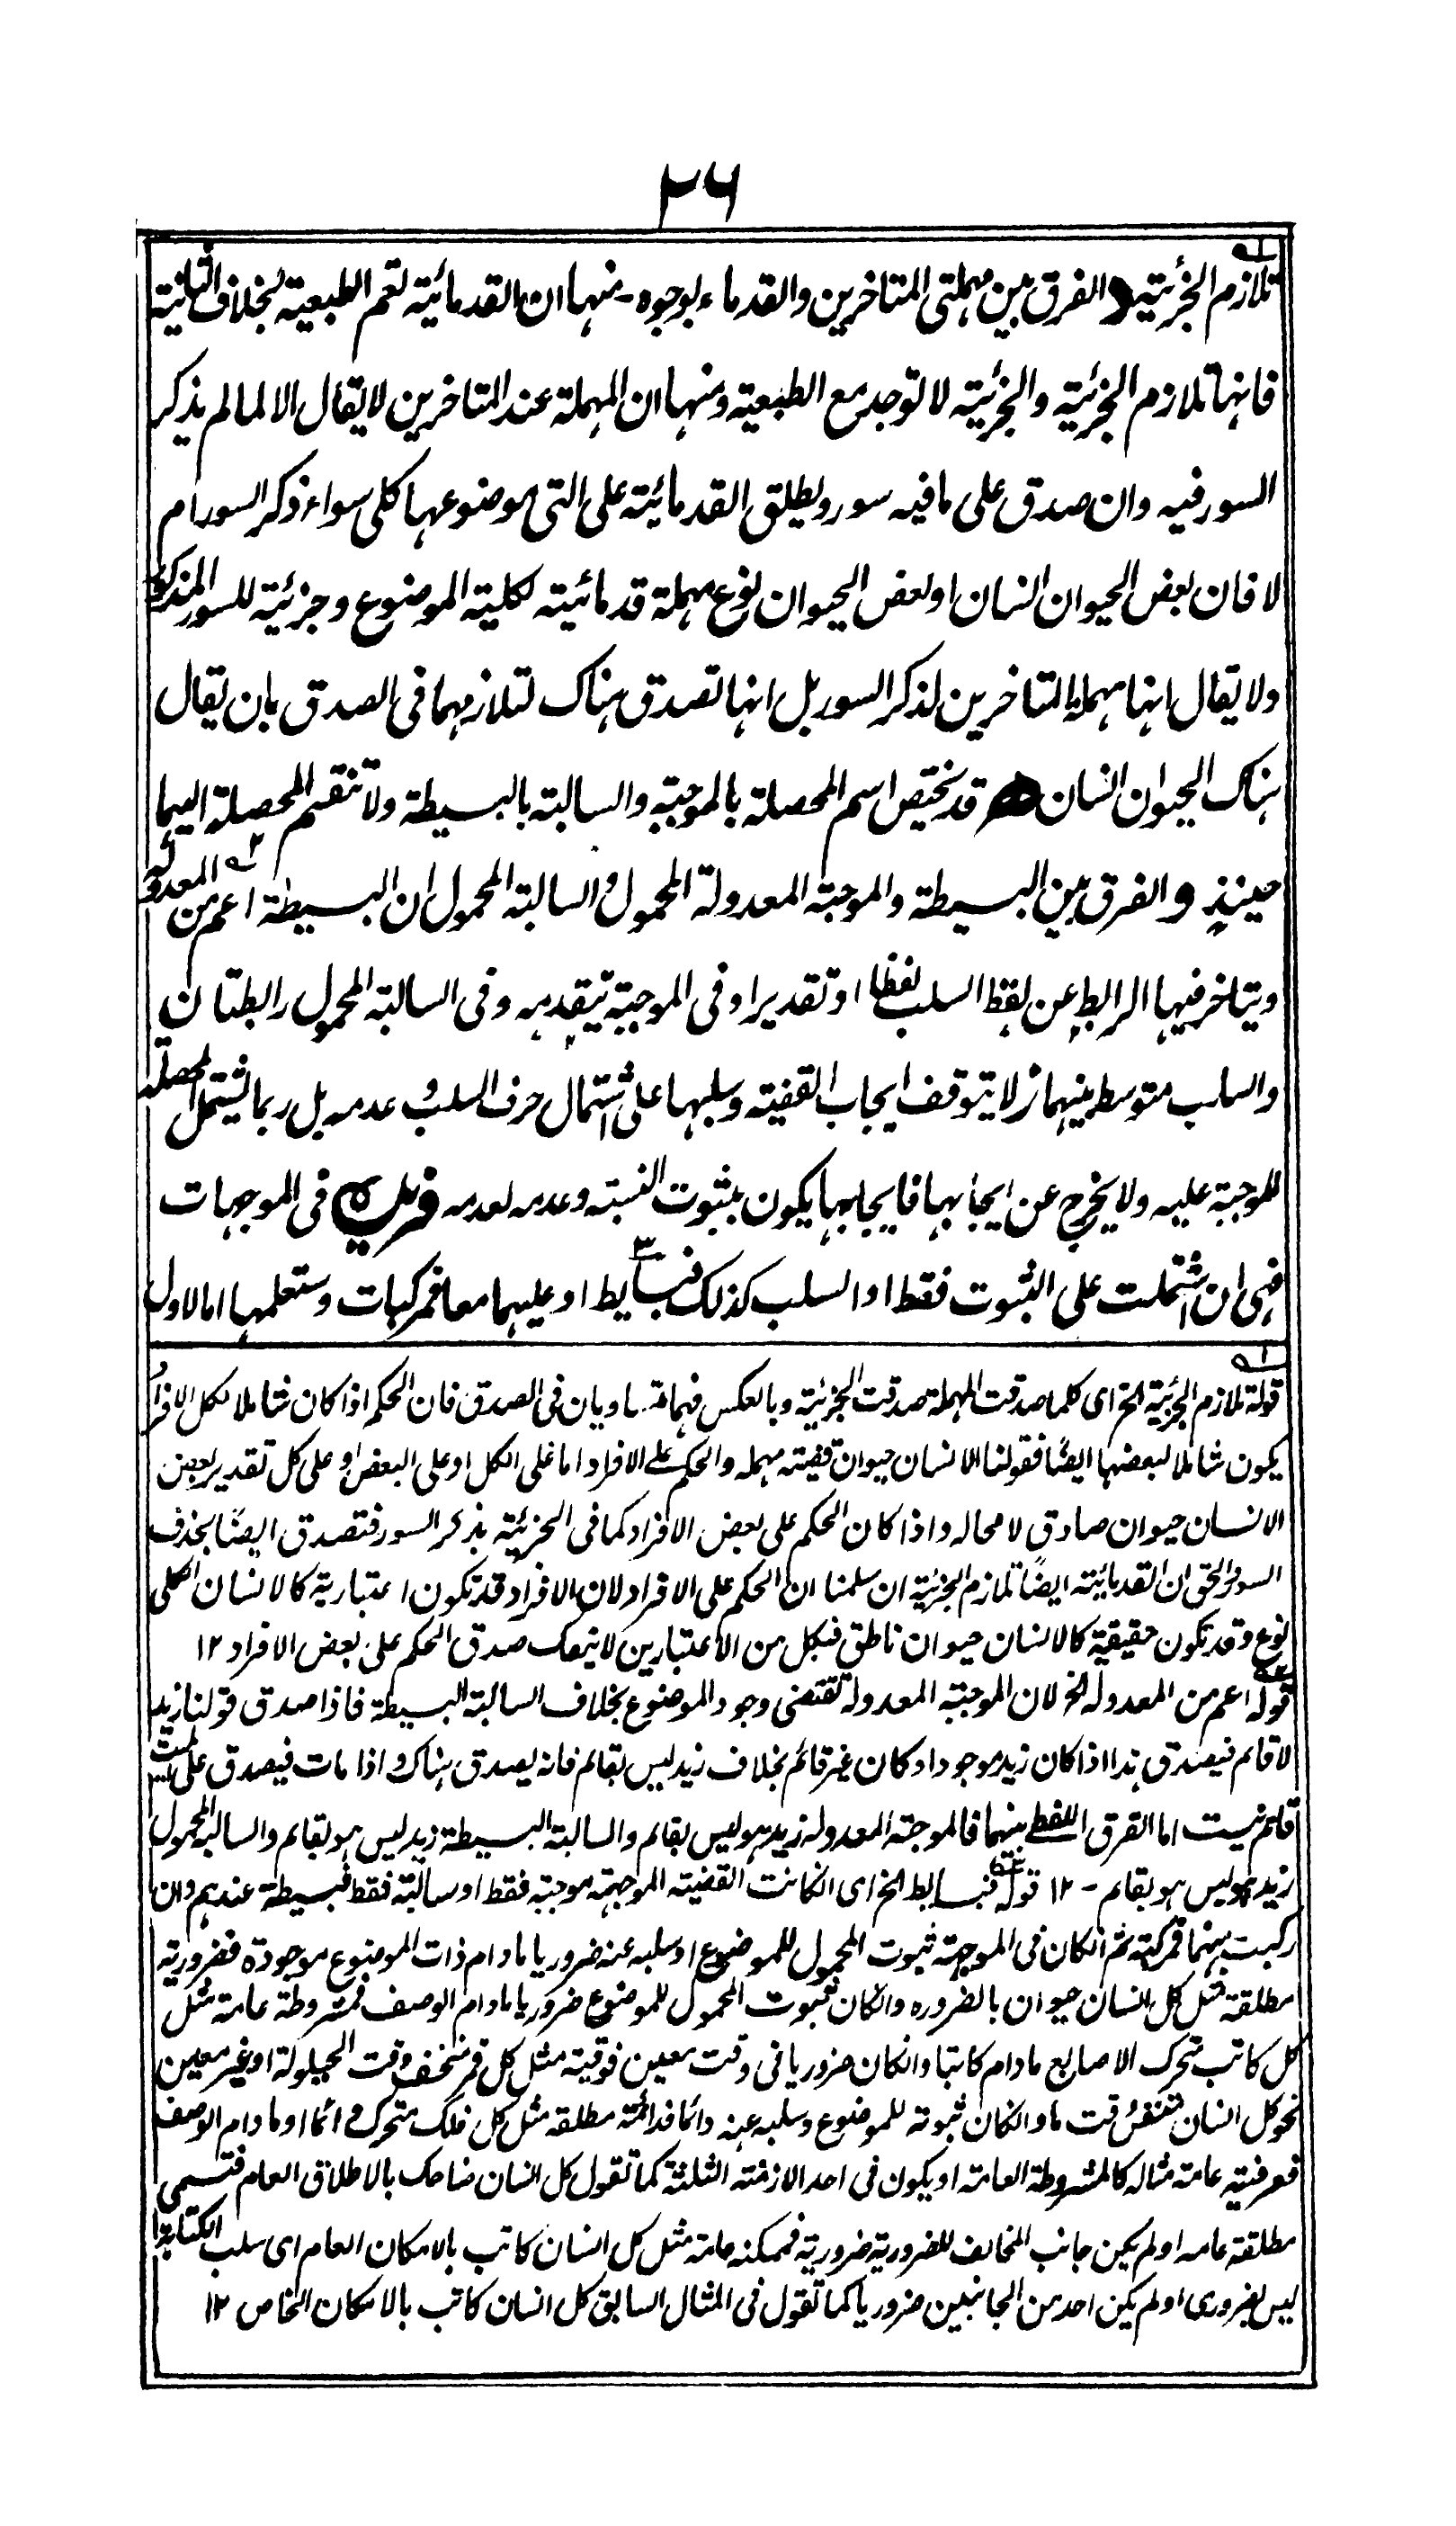 ٢٦
تلازم الجزئية والفرق بين مهملتى المتاخرين والقدماء بوجوه - منها ان القدمائية تعم الطبعية بخلاف الثانية
فانها تلازم الجزئية والجزئية لا توجد مع الطبعية ومنها ان المهملة عند المتاخرين لا يقال الا لما لم يذكر
السور فيه وان صدق على ما فيه سور ويطلق القدمائية على التى موضوعها كلى سواء ذكر السور ام
لا فان بعض الحيوان انسان او بعض الحيوان نوع مهملة قدمائية لكلية الموضوع وجزئية للسور المذكور
ولا يقال انها مهملة المتاخرين لذكر السور بل انها تصدق هناك لتلازمهما فى الصدق بان يقال
هناك الحيوان انسان قد يختص اسم المحصلة بالموجبة والسالبة بالبسيطة ولا تنقسم المحصلة اليهما
حينئذ والفرق بين البسيطة والموجبة المعدولة المحمول والسالبة المحمول ان البسيطة اعم من المعدولة
ويتاخر فيها الرابط عن لفظ السلب لفظا او تقديرا وفى الموجبة يتقدمه وفى السالبة المحمول رابطتان
والسلب متوسط بينهما لا يتوقف ايجاب القضية وسلبها على اشتمال حرف السلب وعدمه بل ربما يشتمل المحصلة
الموجبة عليه ولا يخرج عن ايجابها فايجابها يكون بثبوت النسبة وعدمه لعدمه فى الموجهات
فهى ان اشتملت على الثبوت فقط او السلب كذلك فبسايط او عليهما معا فمركبات وستعلمها اما الاول
١ قوله تلازم الجزئية الخ اى كلما صدقت المهملة صدقت الجزئية وبالعكس فهما متساويان فى الصدق فان الحكم اذا كان شاملا لكل الافراد
يكون شاملا لبعضها ايضًا فقولنا الانسان حيوان قضية مهملة والحكم على الافراد اما على الكل او على البعض وعلى كل تقدير بعض
الانسان حيوان صادق لا محاله واذا كان الحكم على بعض الافراد كما فى الجزئية بذكر السور فتصدق ايضًا بحذف
السور والحق ان القدمائية ايضًا تلازم الجزئية ان سلمنا ان الحكم على الافراد لان الافراد قد تكون اعتبارية كالانسان الكلى
نوع وقد تكون حقيقية كالانسان حيوان ناطق فبكل من الاعتبارين لا ينفك صدق الحكم على بعض الافراد ١٢
٢ قوله اعم من المعدوله الخ لان الموجبة المعدولة تقتضى وجود الموضوع بخلاف السالبة البسيطة فاذا صدق قولنا زيد
لا قائم فيصدق هذا اذا كان زيد موجودا وكان غير قائم بخلاف زيد ليس بقائم فانه يصدق هناك واذا مات فيصدق على
اما الفرق اللفظى بينهما فالموجبة المعدوله زيد هو ليس بقائم والسالبة البسيطة زيد ليس هو بقائم والسالبة المحمول
زيد هو ليس هو بقائم - ١٢ ٣ قوله فبسايط الخ اى ان كانت القضية الموجهة موجبة فقط او سالبة فقط فبسيطة عندهم وان
ركبت بينهما فمركبة ثم ان كان فى الموجهة ثبوت المحمول للموضوع او سلبه عنه ضروريا ما دام ذات الموضوع موجودة فضرورية
مطلقة مثل كل انسان حيوان بالضروره وان كان ثبوت المحمول للموضوع ضروريا ما دام الوصف فمشروطة عامة مثل
كل كاتب متحرك الاصابع مادام كاتبا وان كان ضروريا فى وقت معين فوقتية مثل كل قمر منخسف وقت الحيلولة او غير معين
نحو كل انسان متنفس وقت ما وان كان ثبوته للموضوع وسلبه عنه دائما فدائمة مطلقة مثل كل فلك متحرك دائما او ما دام الوصف
فعرفية عامة مثاله كالمشروطة العامة او يكون فى احد الازمنة الثلثة كما تقول كل انسان ضاحك بالاطلاق العام فتسمى
مطلقة عامه او لم يكن جانب المخالف للضرورية ضرورية فممكنه عامة مثل كل انسان كاتب بالامكان العام اى سلب الكتابة
ليس بضرورى او لم يكن احد من الجانبين ضروريا كما تقول فى المثال السابق كل انسان كاتب بالامكان الخاص ١٢